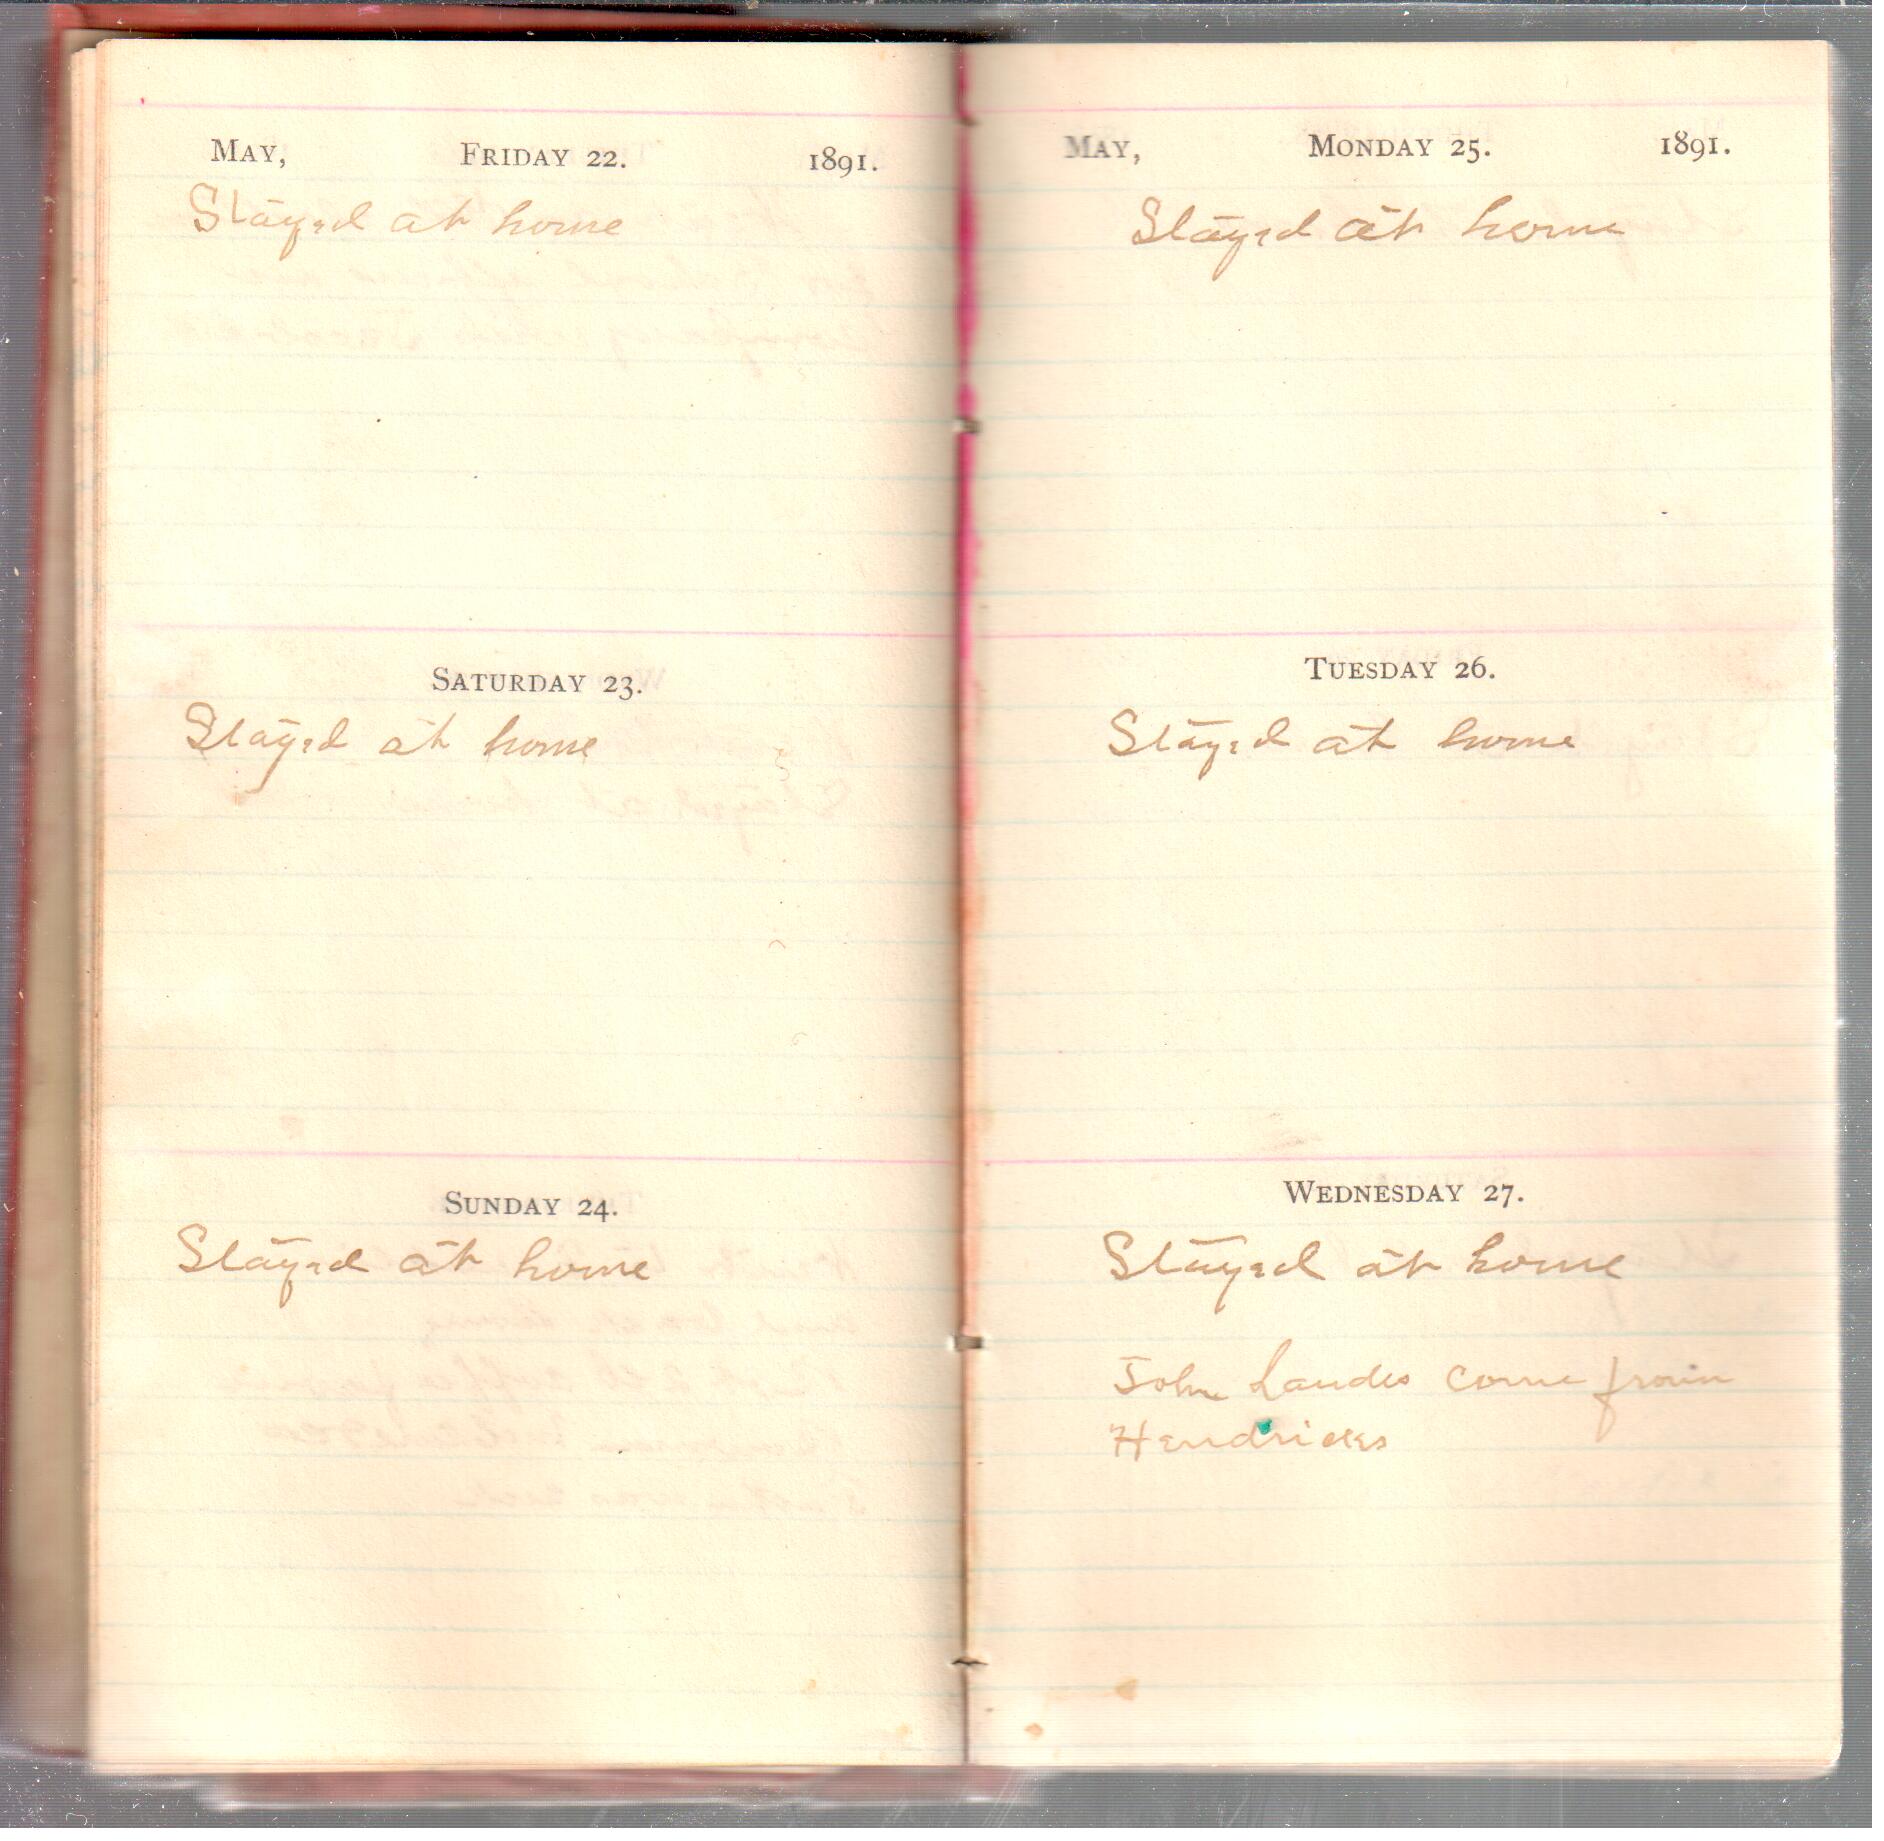 MAY, FRIDAY 22. 1891.
Stayed at home
SATURDAY 23.
Stayed at home
SUNDAY 24.
Stayed at home
MAY, MONDAY 25. 1891.
Stayed at home
TUESDAY 26.
Stayed at home
WEDNESDAY 27.
Stayed at home
John Landes come from
Hendricks